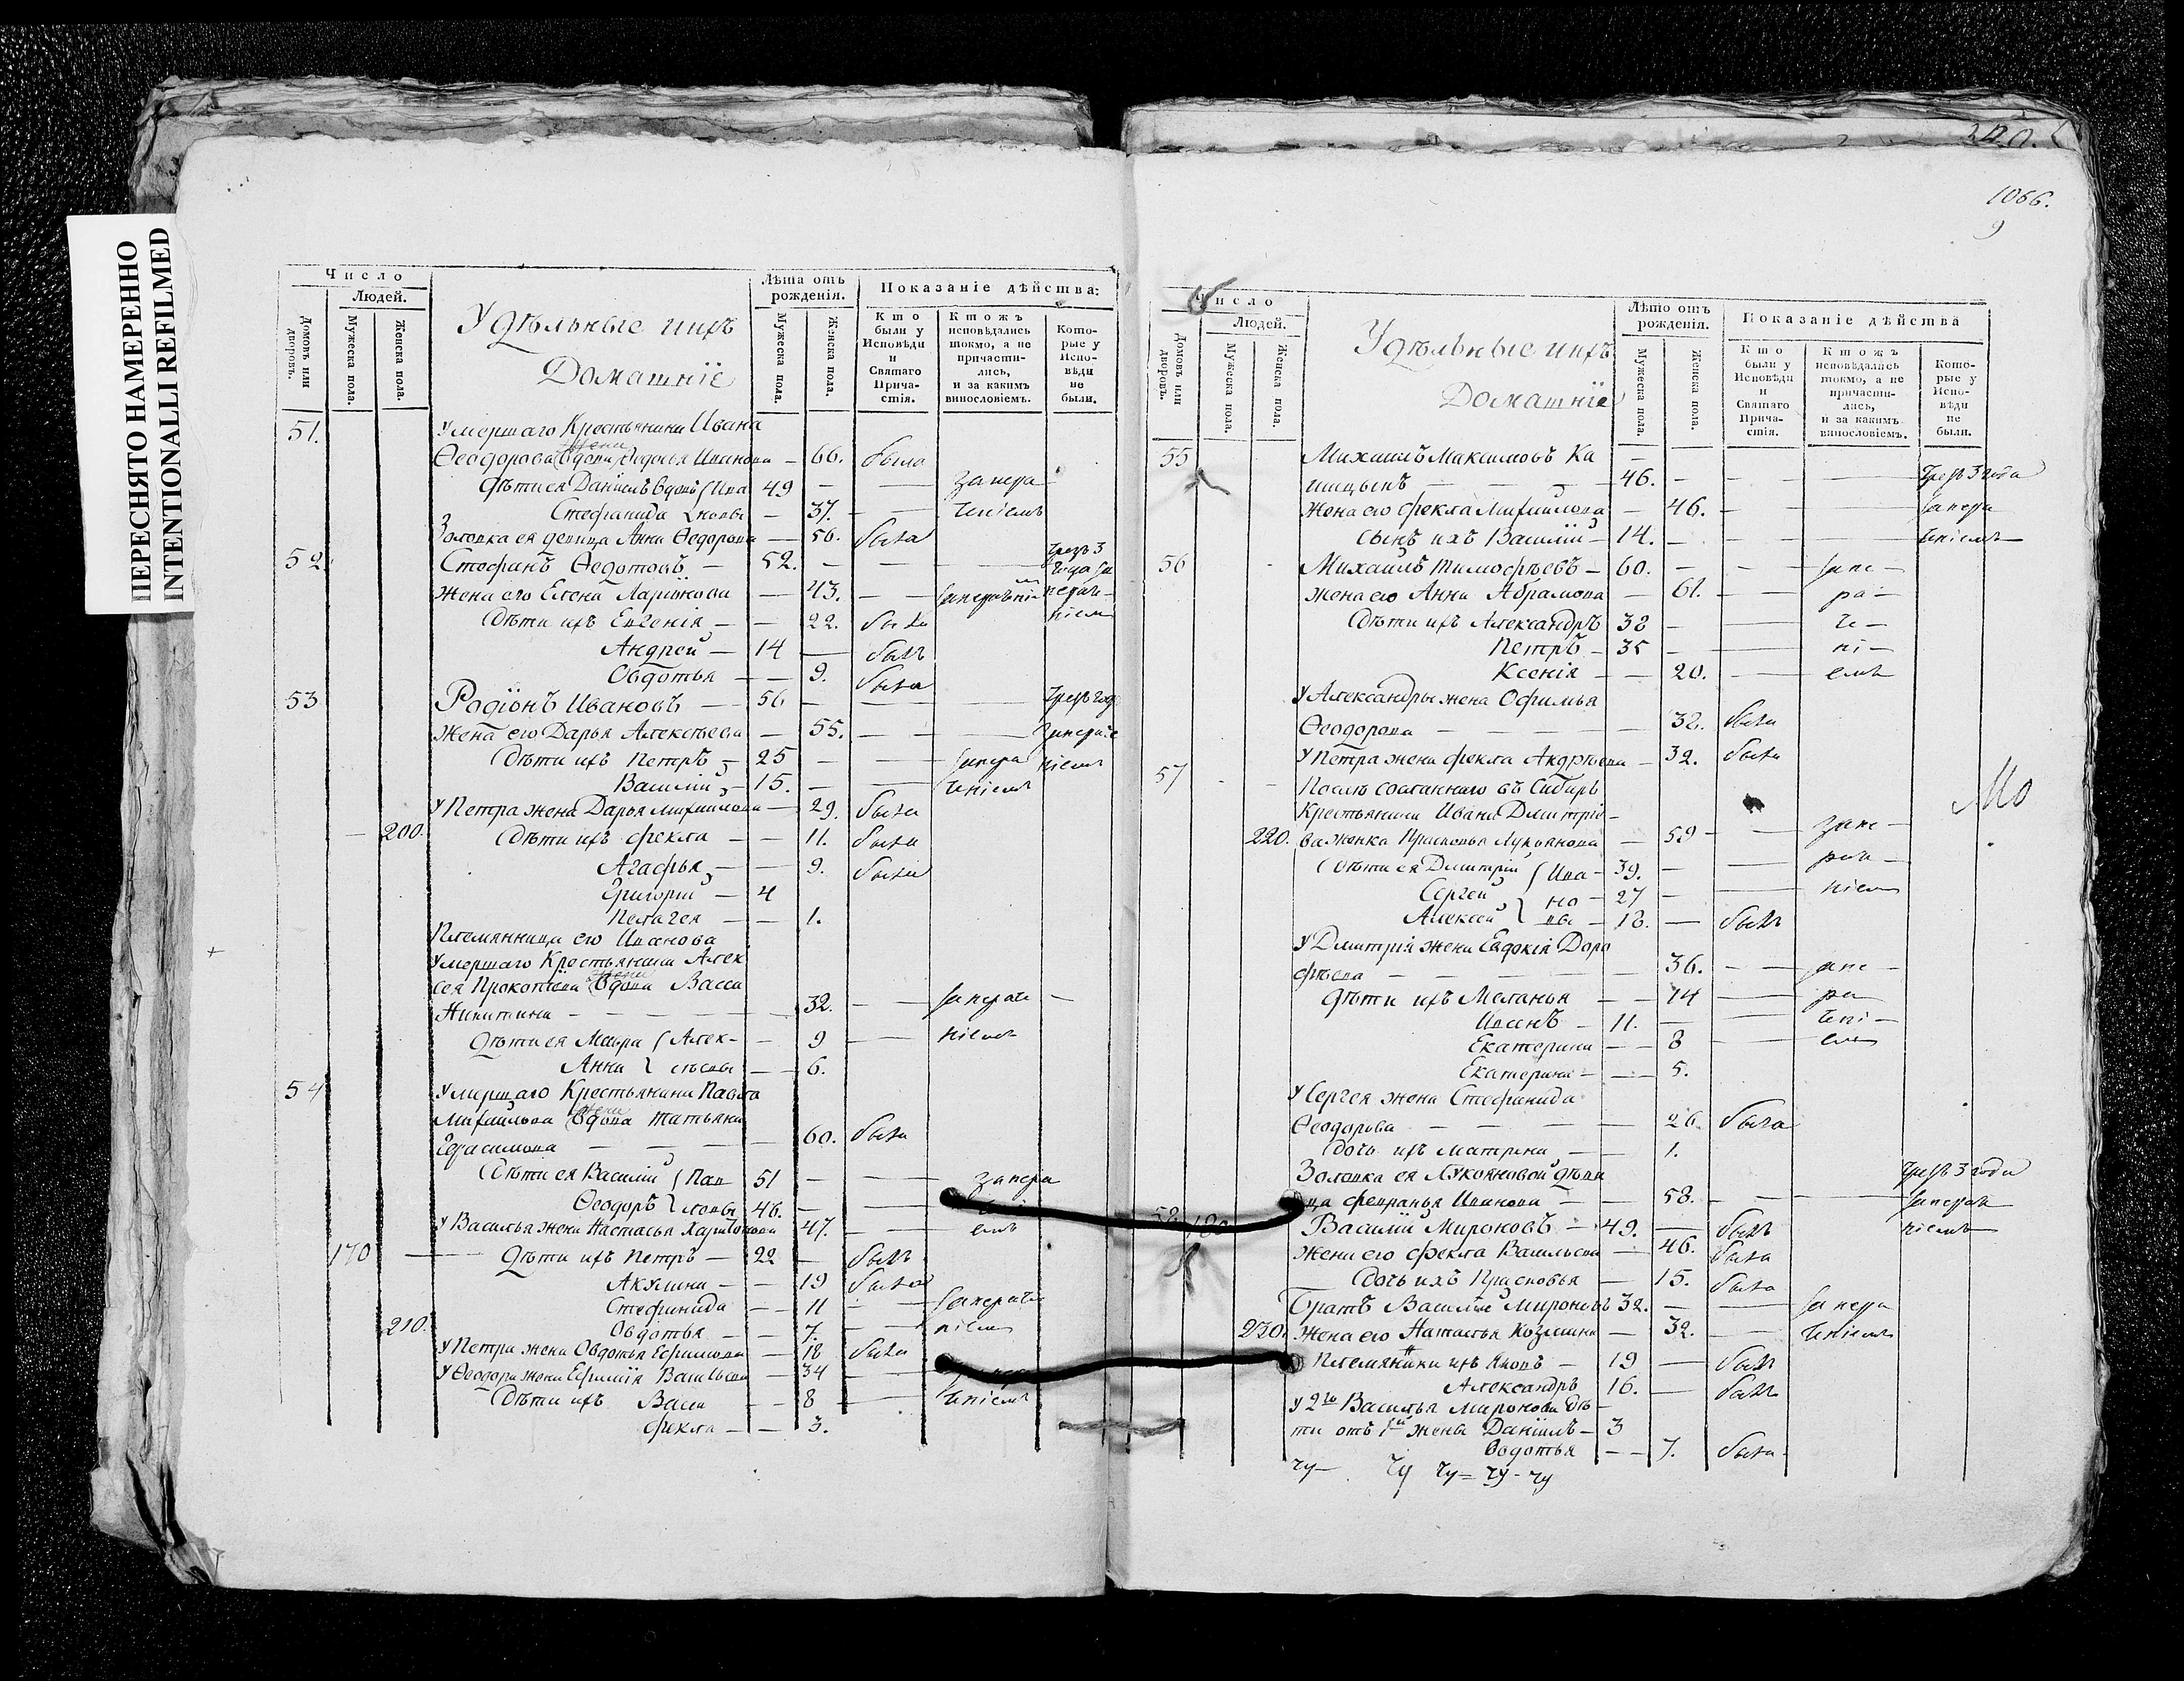 ПЕРЕСНЯТО НАМЕРЕННО
INTENTIONALLI REFILMED
Число
Людей.
Домовъ или дворовъ.
Мужеска пола.
Женска пола.
Удѣльные ихъ
Домашніе
Лѣта отъ рожденія.
Мужеска пола.
Женска пола.
Показаніе дѣйства:
Кто были у Исповѣди и Святаго Причастія.
Ктожъ исповѣдались токмо, а не причастились, и за какимъ винословіемъ.
Которые у Исповѣди не были.
51. Умершаго Крестьянина Ивана
Ѳеодорова вдова Ѳедосья Иванова — 66. была
дѣти ея Даніилъ вдовъ Ива 49 — — за нера
Стефанида новы — 37. — — ченіемъ
Золовка ея девица Анна Ѳедорова — 56. была
52. Стефанъ Ѳедотовъ — 52. — — — чрезъ 3 года за
жена его Елена Ларіонова — 43. — —
Дѣти ихъ Евгенія — — 22. была
Андрей — 14 — былъ
Овдотья — — 9. была
53 Родіонъ Ивановъ — 56 — — — чрезъ год
Жена его Дарья Алексѣева — 55. — —
Дѣти ихъ Петръ — 25 — — за нера
Василій — 15. — — ченіемъ
У Петра жена Дарья Михаилова — 29. была
— 200. Дѣти ихъ Фекла — — 11. была
Агафья — — 9. была
Григорій — 4
Пелагея — — 1.
Племянница его Иванова
Умершаго Крестьянина Алек
сея Прокопіева вдова Васса
Никитина — — — — 32. — — за нерачь
Дѣти ея Мавра Алек- — 9 — — ніемъ
Анна сѣевы — — 6.
54 Умершаго Крестьянина Павла
Михаилова вдова Татьяна
Герасимова — — — — 60. была
Дѣти ея Василій Пав 51 — — за нера
Ѳеодоръ ловы 46. — —
У Василья жена Настасья Харитонова 47. — — емъ
170 — Дѣти ихъ Петръ — 22 — былъ
Акулина — — 19 была
Стефанида — — 11 — за нераче
210. Овдотья — — 7. — ніемъ
У Петра жена Овдотья Ефимова — 18 была
У Ѳеодора жена Ефимія Васильева — 34
Дѣти ихъ Васса — — 8 — ченіемъ
Фекла — — 3.
240.
1066.
9
Число
Людей.
Домовъ или дворовъ.
Мужеска пола.
Женска пола.
Удѣльные ихъ
Домашніе
Лѣто отъ рожденія.
Мужеска пола.
Женска пола.
Показаніе дѣйства
Кто были у Исповѣди и Святаго Причастія.
Ктожъ исповѣдались токмо, а не причастились, и за какимъ винословіемъ.
Которые у Исповѣди не были.
55 Михаилъ Максимовъ Ка —
ицынъ — — — 46. — — — чрезъ 3 года
Жена его Фекла Михаилова — 46. — — за нера
сынъ ихъ Василій — 14. — — ченіемъ —
56 Михаилъ Тимофѣевъ — 60. — — за не —
жена его Анна Абрамова — 61. — — ра —
Дѣти ихъ Александръ 38 — — че —
Петръ — 35 — — ні —
Ксенія — — 20. — емъ
У Александры жена Офимья
Ѳеодорова — — — — 32. была
У Петра жена Фекла Андрѣева — 32. была
57 Послѣ сосланнаго въ Сибирь
Крестьянина Ивана Дмитріе-
220. ва женка Прасковья Лукьянова — 59 — — за не —
Дѣти ея Дмитрій Ива — 39. — — рачь —
Сергей но — 27 — — ніемъ
Алексѣй вы — 18. — былъ
У Дмитрія жена Евдокія Доро
фѣева — — — — 36. — — за не —
дѣти ихъ Меланья — — 14 — ра
Иванъ — 11. — — чені —
Екатерина — — 8 — — емъ
Екатерина — — 5.
У Сергея жена Стефанида
Ѳеодорова — — — — 26. была
Дочь ихъ Матрена — — 1.
Золовка ея Лукояновой дѣви чрезъ 3 года
ца Февранья Иванова — — 58. — — — за нерач
58 180 Василій Мироновъ — 49. — былъ ніемъ
Жена его Фекла Васильева — 46. была
Дочь ихъ Прасковья — 15. была
Братъ Василій Мироновъ 32. — — за нера
230. Жена его Наталья Козмина — 32. — ченіемъ
Племянники ихъ Яковъ — 19 — былъ
Александръ 16. — былъ
У 2го Василья Миронова дѣ —
ти отъ 1й жены Даніилъ — 3
Овдотья — — 7. была